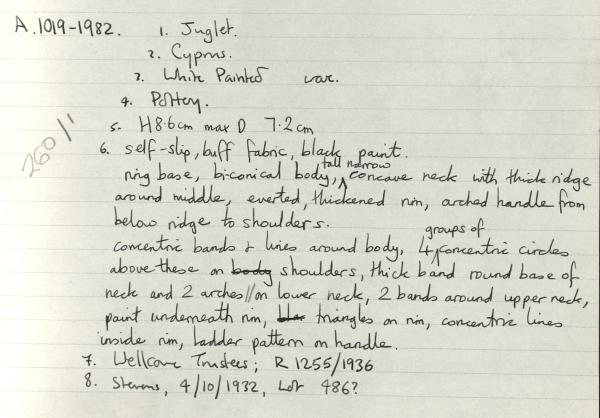 A.1019-1982. 1. Juglet.
2. Cyprus.
3. White Painted ware.
4. Pottery.
5. H 8.6cm max D 7.2cm
260/1
6. self-slip, buff fabric, black paint.
ring base, biconical body, tall narrow concave neck with thick ridge
around middle, everted, thickened rim, arched handle from
below ridge to shoulders.
concentric bands & lines around body, 4 groups of concentric circles
above these on body shoulders, thick band round base of
neck and 2 arches // on lower neck, 2 bands around upper neck,
paint underneath rim, triangles on rim, concentric lines
inside rim, ladder pattern on handle.
7. Wellcome Trustees; R 1255/1936
8. Stevens, 4/10/1932, Lot 486?